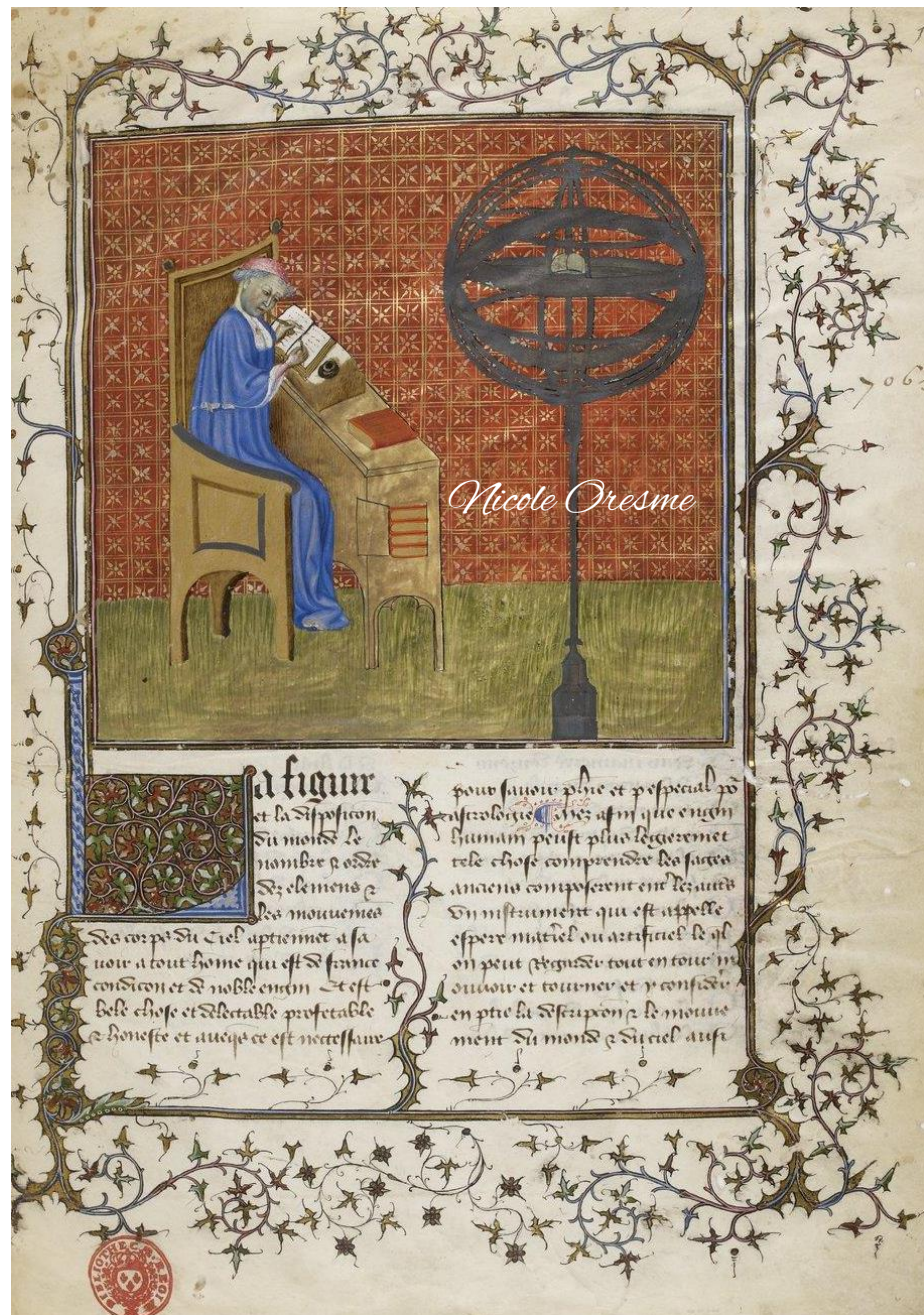 Nicole Oresme
706
a figure
et la disposicion
du monde le
nombre & ordre
dez elemens &
les mouvemens
des corps du Ciel aptiennet a sa
voir a tout home qui est de france
condicon et de noble engin Et est
bele chose et delectable profetable
& honeste et aveqs ce est necessaire
pour savoir phie et p especial po
astrologie ¶ Mez afin que engin
humain peust plus legierement
tele chose comprendre les sages
anciens composerent ent lez auts
un instrument qui est appelle
espere matiel ou artificiel le ql
on peut Regarder tout entour m
ouvoir et tourner et y considerer
en ptie la descripcon & le mouve
ment du monde & du ciel aussi